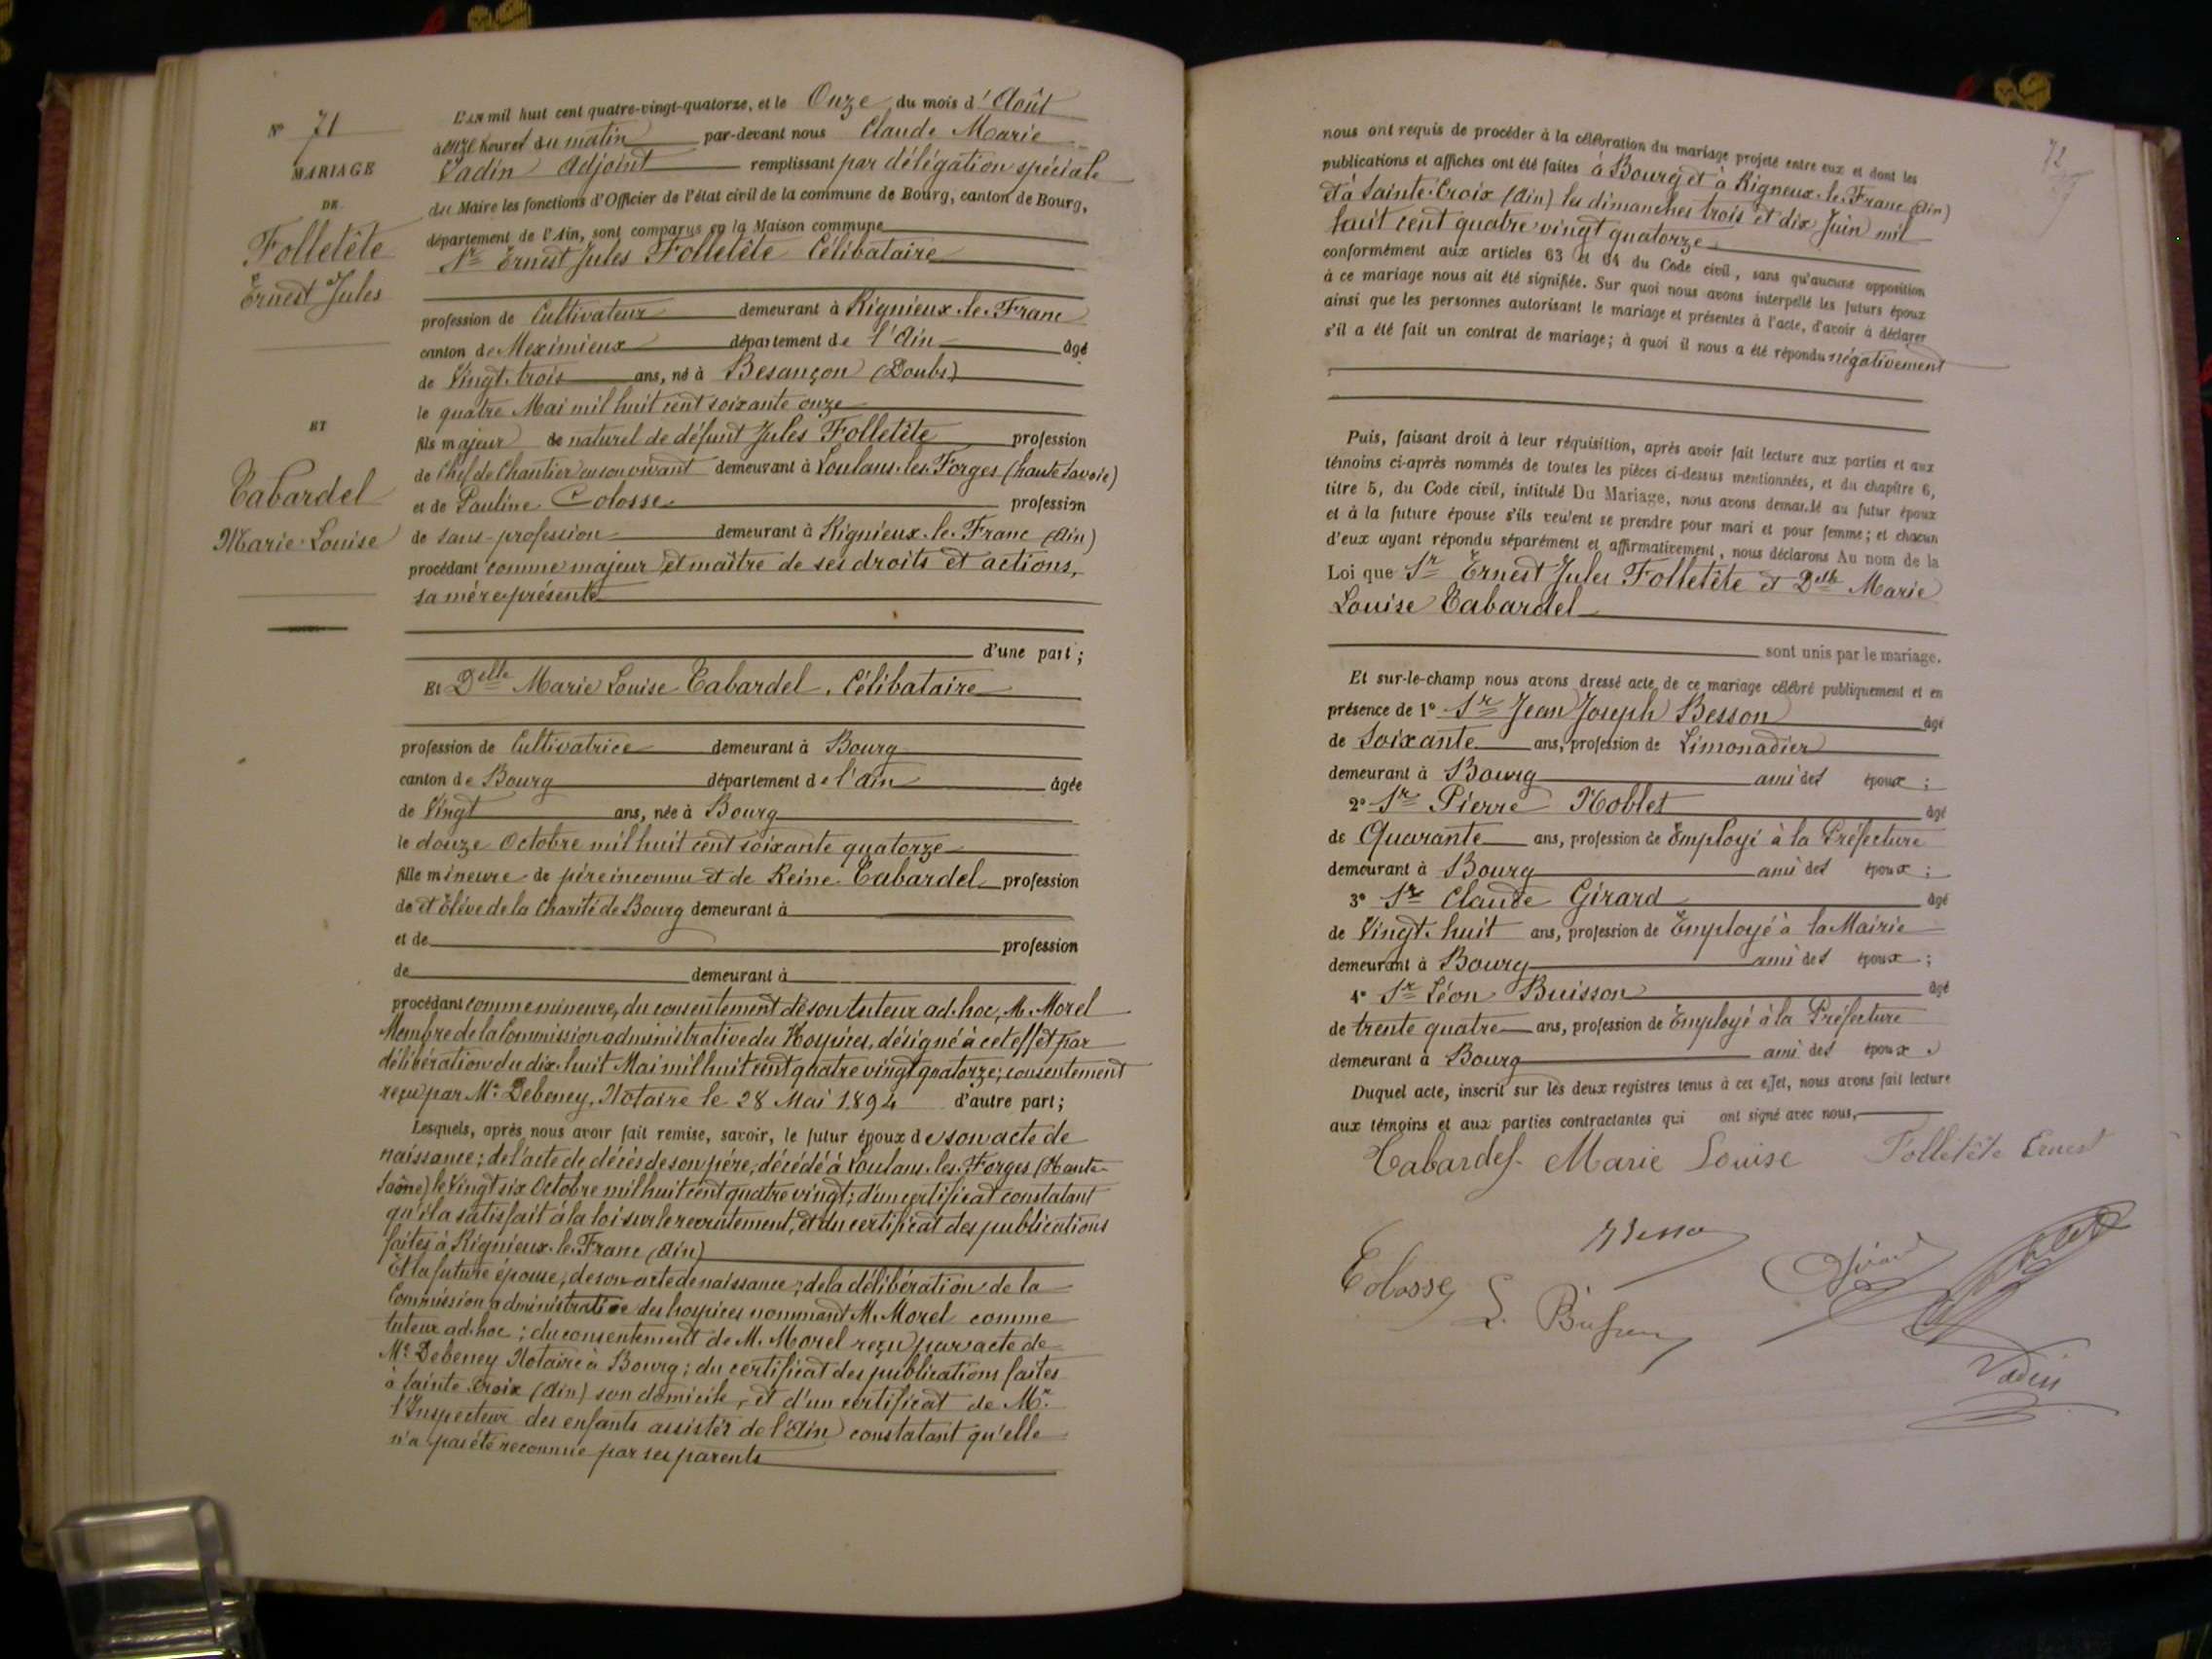 N° 71
MARIAGE
DE
Folletête
Ernest Jules
ET
Tabardel
Marie Louise
L'AN mil huit cent quatre-vingt-quatorze, et le Onze du mois d'Août
à onze heures du matin par-devant nous Claude Marie
Vadin Adjoint remplissant par délégation spéciale
du Maire les fonctions d'Officier de l'état civil de la commune de Bourg, canton de Bourg,
département de l'Ain, sont comparus en la Maison commune
Sr Ernest Jules Folletête Célibataire
profession de Cultivateur demeurant à Rignieux-le-Franc
canton de Meximieux département de l'Ain âgé
de Vingt-trois ans, né à Besançon (Doubs)
le quatre Mai mil huit cent soixante onze
fils majeur de naturel de défunt Jules Folletête profession
de Chef de Chantier en son vivant demeurant à Loulans-les-Forges (haute Savoie)
et de Pauline Colosse profession
de sans profession demeurant à Rignieux-le-Franc (Ain)
procédant comme majeur et maître de ses droits et actions,
sa mère présente
d'une part;
Et Delle Marie Louise Tabardel, Célibataire
profession de Cultivatrice demeurant à Bourg
canton de Bourg département de l'Ain âgée
de Vingt ans, née à Bourg
le douze Octobre mil huit cent soixante quatorze
fille mineure de père inconnu et de Reine Tabardel profession
de et Elève de la Charité de Bourg demeurant à
et de profession
de demeurant à
procédant comme mineure, du consentement de son tuteur ad-hoc, M. Morel
Membre de la Commission administrative des Hospices, désigné à cet effet par
délibération du dix-huit Mai mil huit cent quatre vingt quatorze; consentement
reçu par Me Debeney, Notaire le 28 Mai 1894 d'autre part;
Lesquels, après nous avoir fait remise, savoir, le futur époux de son acte de
naissance; de l'acte de décès de son père, décédé à Loulans-les-Forges (Haute-
Saône) le Vingt six Octobre mil huit cent quatre vingt; d'un certificat constatant
qu'il a satisfait à la loi sur le recrutement, et du certificat des publications
faites à Rignieux-le-Franc (Ain)
Et la future épouse, de son acte de naissance; de la délibération de la
Commission administrative des hospices nommant M. Morel comme
tuteur ad-hoc; du consentement de M. Morel reçu par acte de
Me Debeney Notaire à Bourg; du certificat des publications faites
à Sainte Croix (Ain) son domicile, et d'un certificat de Mr
l'Inspecteur des enfants assistés de l'Ain constatant qu'elle
n'a pas été reconnue par ses parents
72
nous ont requis de procéder à la célébration du mariage projeté entre eux et dont les
publications et affiches ont été faites à Bourg et à Rigneux-le-Franc (Ain)
et à Sainte-Croix (Ain) les dimanches trois et dix Juin mil
huit cent quatre vingt quatorze
conformément aux articles 63 et 64 du Code civil, sans qu'aucune opposition
à ce mariage nous ait été signifiée. Sur quoi nous avons interpellé les futurs époux
ainsi que les personnes autorisant le mariage et présentes à l'acte, d'avoir à déclarer
s'il a été fait un contrat de mariage; à quoi il nous a été répondu négativement
Puis, faisant droit à leur réquisition, après avoir fait lecture aux parties et aux
témoins ci-après nommés de toutes les pièces ci-dessus mentionnées, et du chapitre 6,
titre 5, du Code civil, intitulé Du Mariage, nous avons demandé au futur époux
et à la future épouse s'ils veulent se prendre pour mari et pour femme; et chacun
d'eux ayant répondu séparément et affirmativement, nous déclarons Au nom de la
Loi que Sr Ernest Jules Folletête et Delle Marie
Louise Tabardel
sont unis par le mariage.
Et sur-le-champ nous avons dressé acte de ce mariage célébré publiquement et en
présence de 1° Sr Jean Joseph Besson âgé
de Soixante ans, profession de Limonadier
demeurant à Bourg ami des époux;
2° Sr Pierre Noblet âgé
de Quarante ans, profession de Employé à la Préfecture
demeurant à Bourg ami des époux;
3° Sr Claude Girard âgé
de Vingt-huit ans, profession de Employé à la Mairie
demeurant à Bourg ami des époux;
4° Sr Léon Buisson âgé
de trente quatre ans, profession de Employé à la Préfecture
demeurant à Bourg ami des époux.
Duquel acte, inscrit sur les deux registres tenus à cet effet, nous avons fait lecture
aux témoins et aux parties contractantes qui ont signé avec nous,
Tabardel Marie Louise Folletête Ernest
Besson
Girard
Colosse
L. Buisson
Vadin